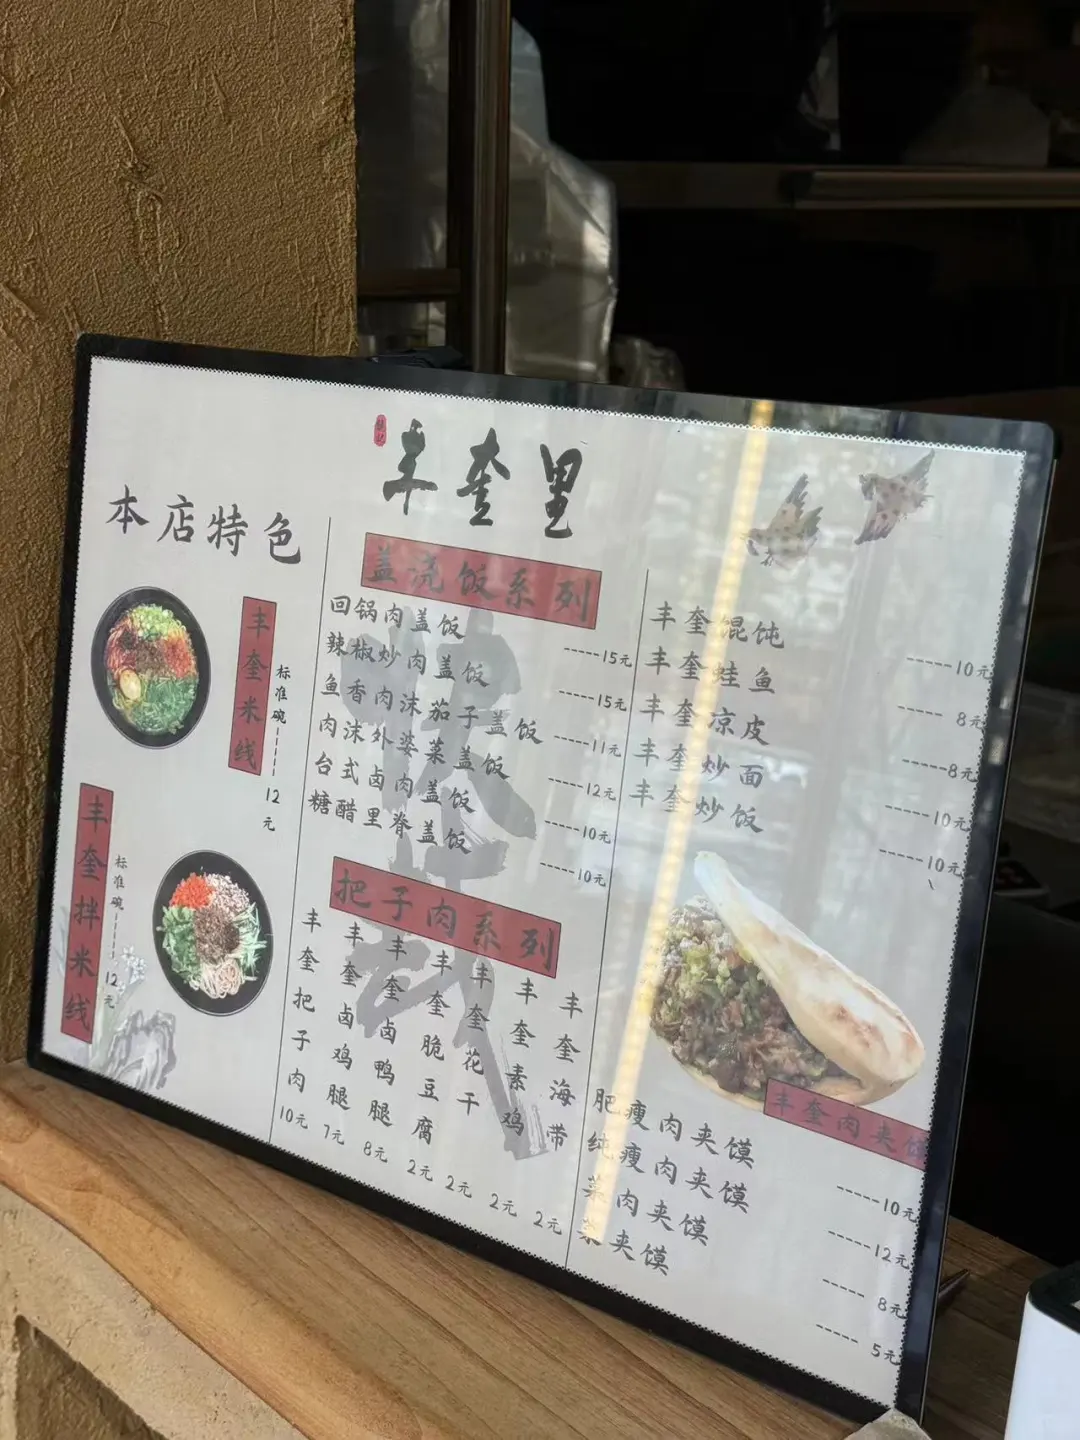 丰奎里
本店特色
丰奎米线
标准碗------12元
丰奎拌米线
标准碗------12元
盖浇饭系列
回锅肉盖饭-----15元
辣椒炒肉盖饭-----15元
鱼香肉沫茄子盖饭-----11元
肉沫外婆菜盖饭-----12元
台式卤肉盖饭-----10元
糖醋里脊盖饭-----10元
把子肉系列
丰奎把子肉 10元
丰奎卤鸡腿 7元
丰奎卤鸭腿 8元
丰奎脆豆腐 2元
丰奎花干 2元
丰奎素鸡 2元
丰奎海带 2元
丰奎馄饨-----10元
丰奎蛙鱼-----8元
丰奎凉皮-----8元
丰奎炒面-----10元
丰奎炒饭-----10元
丰奎肉夹馍
肥瘦肉夹馍-----10元
纯瘦肉夹馍-----12元
菜肉夹馍-----8元
菜夹馍-----5元